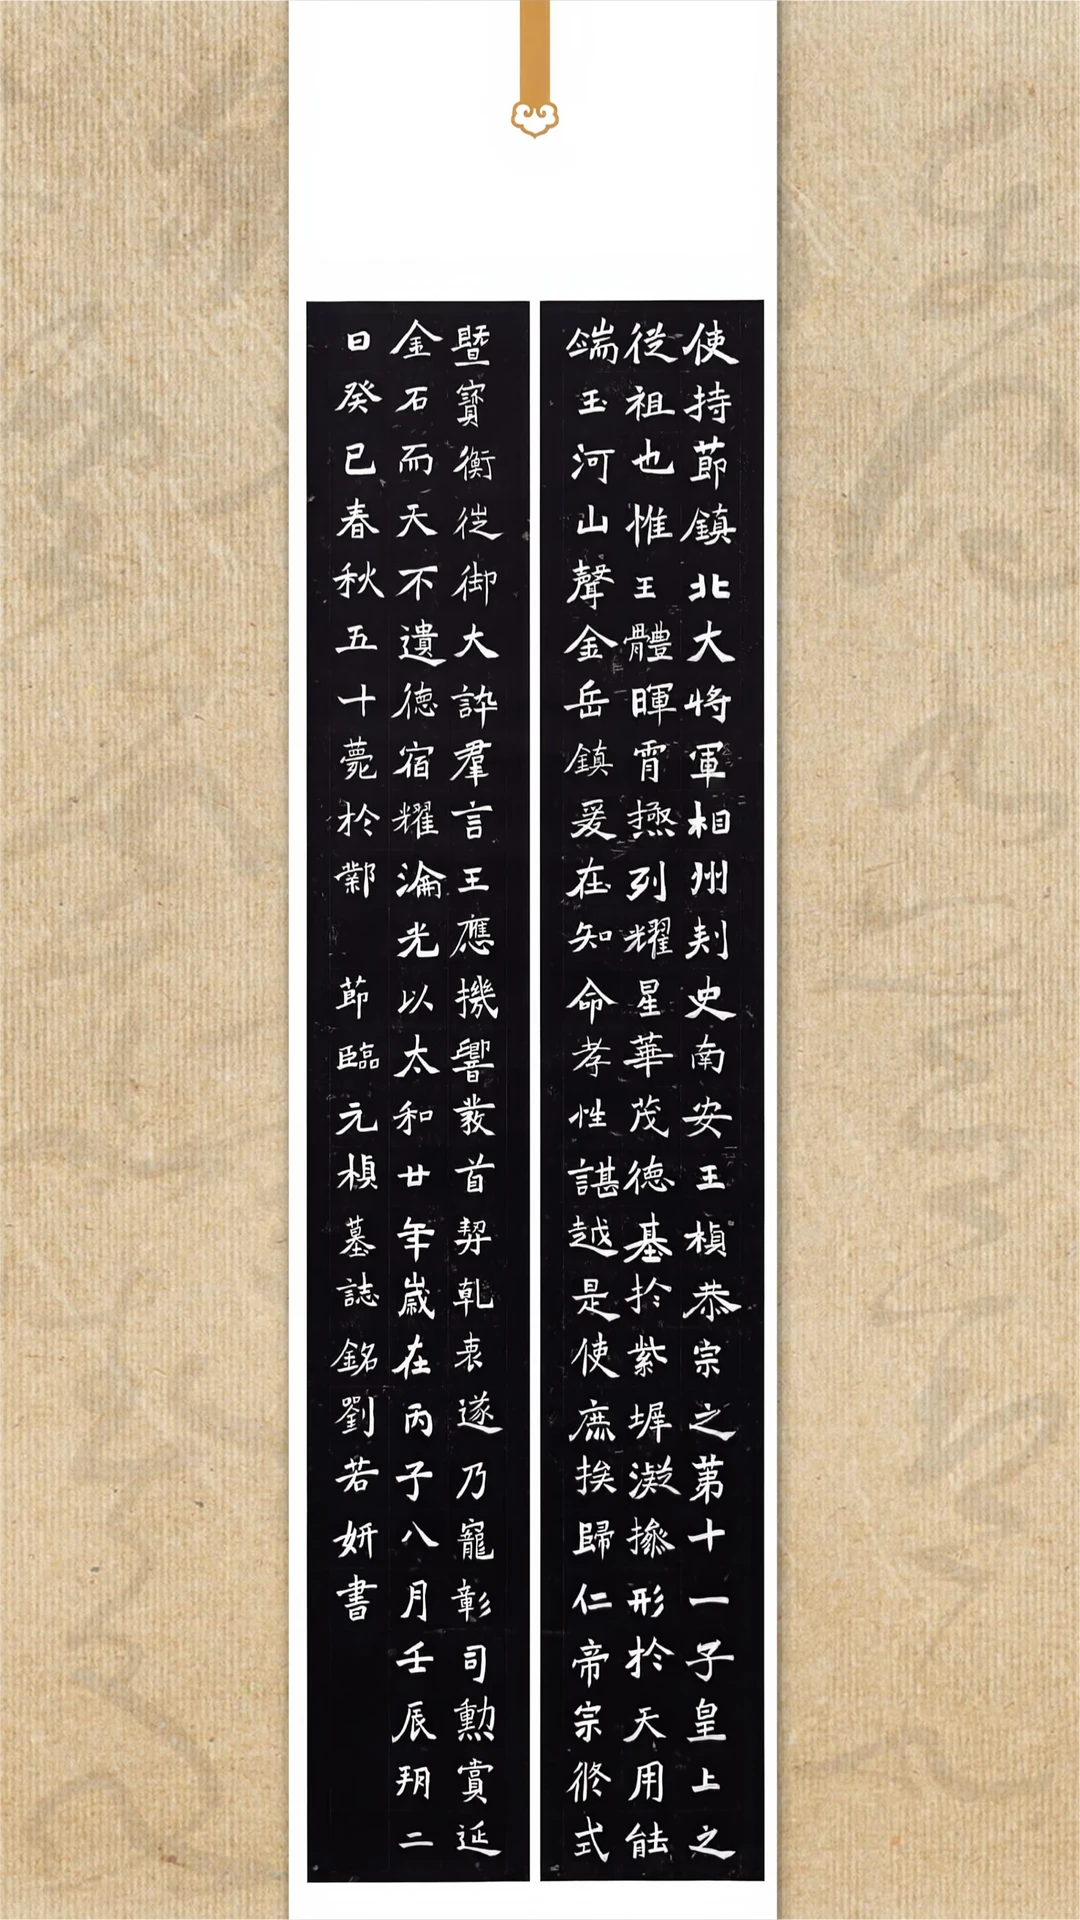 使持節鎮北大將軍相州刾史南安王楨恭宗之第十一子皇上之
從祖也惟王體暉霄極列耀星華茂德基於紫墀凝操形於天用能
端玉河山聲金岳鎮爰在知命孝性諶越是使庶族歸仁帝宗攸式
暨寶衡從御大訡羣言王應機響發首契乹衷遂乃寵彰司勳賞延
金石而天不遺德宿耀淪光以太和廿年歲在丙子八月壬辰朔二
日癸巳春秋五十薨於鄴 節臨元楨墓誌銘劉若妍書